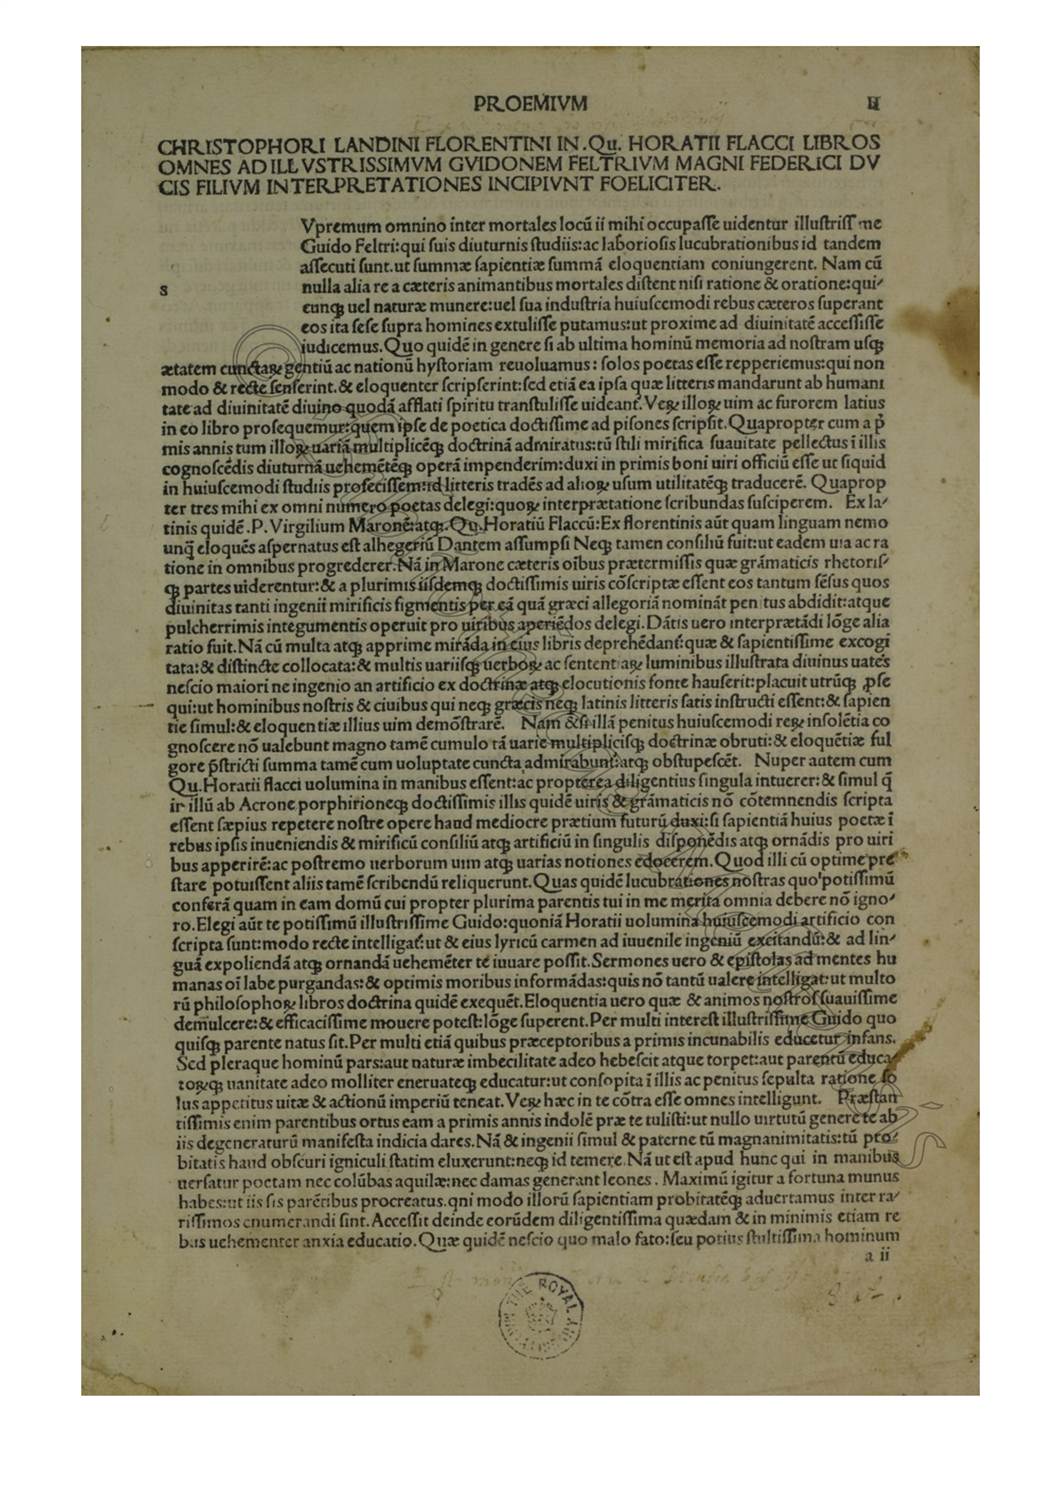 PROEMIVM II
CHRISTOPHORI LANDINI FLORENTINI IN .Qu. HORATII FLACCI LIBROS
OMNES AD ILLVSTRISSIMVM GVIDONEM FELTRIVM MAGNI FEDERICI DV
CIS FILIVM INTERPRETATIONES INCIPIVNT FOELICITER.
Vpremum omnino inter mortales locū ii mihi occupasse uidentur illustriss me
Guido Feltri:qui suis diuturnis studiis:ac laboriosis lucubrationibus id tandem
assecuti sunt.ut summæ sapientiæ summā eloquentiam coniungerent. Nam cū
s nulla alia re a cæteris animantibus mortales distent nisi ratione & oratione:qui-
cunqꝫ uel naturæ munere:uel sua industria huiuscemodi rebus cæteros superant
eos ita sese supra homines extulisse putamus:ut proxime ad diuinitatē accessisse
iudicemus.Quo quidē in genere si ab ultima hominū memoria ad nostram usqꝫ
ætatem cunctaꝝ gentiū ac nationū hystoriam reuoluamus: solos poetas esse repperiemus:qui non
modo & recte senserint.& eloquenter scripserint:sed etiā ea ipsa quæ litteris mandarunt ab humani
tate ad diuinitatē diuino quodā afflati spiritu transtulisse uideant᷑.Veꝝ illoꝝ uim ac furorem latius
in eo libro prosequemur:quem ipse de poetica doctissime ad pisones scripsit.Quapropter cum a p̄
mis annis tum illoꝝ uariā multiplicēqꝫ doctrinā admiratus:tū stili mirifica suauitate pellectus ī illis
cognoscēdis diuturnā uehemētēqꝫ operā impenderim:duxi in primis boni uiri officiū esse ut siquid
in huiuscemodi studiis profecissem:id litteris tradēs ad alioꝝ usum utilitatēqꝫ traducerē. Quaprop
ter tres mihi ex omni numero poetas delegi:quoꝝ interprætatione scribundas susciperem. Ex la-
tinis quidē .P. Virgilium Maronē:atqꝫ .Qu. Horatiū Flaccū:Ex florentinis aūt quam linguam nemo
unq̄ eloquēs aspernatus est alhegeriū Dantem assumpsi Neqꝫ tamen consiliū fuit:ut eadem uia ac ra
tione in omnibus progrederer.Nā in Marone cæteris oībus prætermissis quæ grāmaticis rhetoris-
qꝫ partes uiderentur:& a plurimis iisdemqꝫ doctissimis uiris cōscriptæ essent eos tantum sēsus quos
diuinitas tanti ingenii mirificis figmentis per eā quā græci allegoriā nomināt penitus abdidit:atque
pulcherrimis integumentis operuit pro uiribus aperiēdos delegi.Dātis uero interprætādi lōge alia
ratio fuit.Nā cū multa atqꝫ apprime mirāda in eius libris deprehēdant᷑:quæ & sapientissime excogi
tata:& distincte collocata:& multis uariisqꝫ uerboꝝ ac sententiaꝝ luminibus illustrata diuinus uates
nescio maiori ne ingenio an artificio ex doctrinæ atqꝫ elocutionis fonte hauserit:placuit utrūqꝫ ꝓse
qui:ut hominibus nostris & ciuibus qui neqꝫ græcis neqꝫ latinis litteris satis instructi essent:& sapien
tie simul:& eloquentiæ illius uim demōstrarē. Nam & si illā penitus huiuscemodi reꝝ insolētia co
gnoscere nō ualebunt magno tamē cumulo tā uarie multiplicisqꝫ doctrinæ obruti:& eloquētiæ ful
gore p̄stricti summa tamē cum uoluptate cuncta admirabunt᷑:atqꝫ obstupescēt. Nuper autem cum
Qu.Horatii flacci uolumina in manibus essent:ac propterea diligentius singula intuerer:& simul q̄
ir illū ab Acrone porphirioneqꝫ doctissimis illis quidē uiris & grāmaticis nō cōtemnendis scripta
essent sæpius repetere nostre opere haud mediocre prætium futurū duxi:si sapientiā huius poetæ ī
rebus ipsis inueniendis & mirificū consiliū atqꝫ artificiū in singulis disponēdis atqꝫ ornādis pro uiri
bus apperirē:ac postremo uerborum uim atqꝫ uarias notiones edocerem.Quod illi cū optime pre
stare potuissent aliis tamē scribendū reliquerunt.Quas quidē lucubrationes nostras quo potissimū
conferā quam in eam domū cui propter plurima parentis tui in me merita omnia debere nō igno-
ro.Elegi aūt te potissimū illustrissime Guido:quoniā Horatii uolumina huiuscemodi artificio con
scripta sunt:modo recte intelligat᷑:ut & eius lyricū carmen ad iuuenile ingeniū excitandū:& ad lin-
guā expoliendā atqꝫ ornandā uehemēter te iuuare possit.Sermones uero & epistolas ad mentes hu
manas oī labe purgandas:& optimis moribus informādas:quis nō tantū ualere intelligat:ut multo
rū philosophoꝝ libros doctrina quidē exequēt.Eloquentia uero quæ & animos nostros suauissime
demulcere:& efficacissime mouere potest:lōge superent.Per multi interest illustrissime Guido quo
quisqꝫ parente natus sit.Per multi etiā quibus præceptoribus a primis incunabilis educetur infans.
Sed pleraque hominū pars:aut naturæ imbecilitate adeo hebescit atque torpet:aut parentū educa-
toꝝqꝫ uanitate adeo molliter eneruateqꝫ educatur:ut consopita ī illis ac penitus sepulta ratione so
lus appetitus uitæ & actionū imperiū teneat.Veꝝ hæc in te cōtra esse omnes intelligunt. Præstan
tissimis enim parentibus ortus eam a primis annis indolē præ te tulisti:ut nullo uirtutū genere te ab
iis degeneraturū manifesta indicia dares.Nā & ingenii simul & paterne tū magnanimitatis:tū pro-
bitatis haud obscuri igniculi statim eluxerunt:neqꝫ id temere.Nā ut est apud hunc qui in manibus
uersatur poetam nec colūbas aquilæ:nec damas generant leones . Maximū igitur a fortuna munus
habes:ut iis sis parētibus procreatus.qni modo illorū sapientiam probitatēqꝫ aduertamus inter ra-
rissimos enumerandi sint.Accessit deinde eorūdem diligentissima quædam & in minimis etiam re
bus uehementer anxia educatio.Quæ quidē nescio quo malo fato:seu potius stultissima hominum
a ii
THE ROYAL